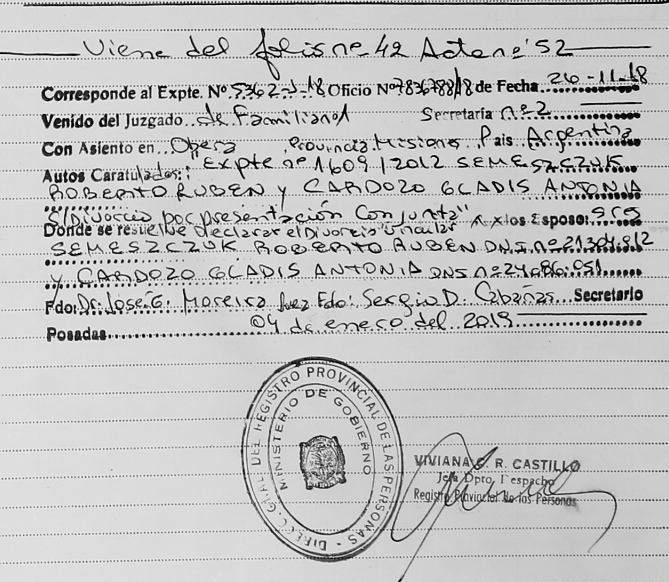 Viene del folio nº 42 Acta nº 52
Corresponde al Expte. Nº 5362-J-18 Oficio Nº 783678818 de Fecha 26-11-18
Venido del Juzgado de Familia nº 1 Secretaría nº 2
Con Asiento en Oberá Provincia Misiones País Argentina
Autos Caratulados: "Expte nº 1609/2012 SEMESZCZUK
ROBERTO RUBEN Y CARDOZO GLADIS ANTONIA
S/Divorcio por presentación Conjunta"
Donde se resuelve declarar el Divorcio Vincular los Esposos
SEMESZCZUK ROBERTO RUBEN DNI nº
Y CARDOZO GLADIS ANTONIA DNI nº 24.686.051
Fdo: Dr. Jose G. Moreira Juez Fdo: Sergio D. Cabañas Secretario
Posadas 04 de enero del 2019
DIREC. GRAL DEL REGISTRO PROVINCIAL DE LAS PERSONAS
MINISTERIO DE GOBIERNO
VIVIANA C. R. CASTILLO
Jefa Dpto. Despacho
Registro Provincial de las Personas